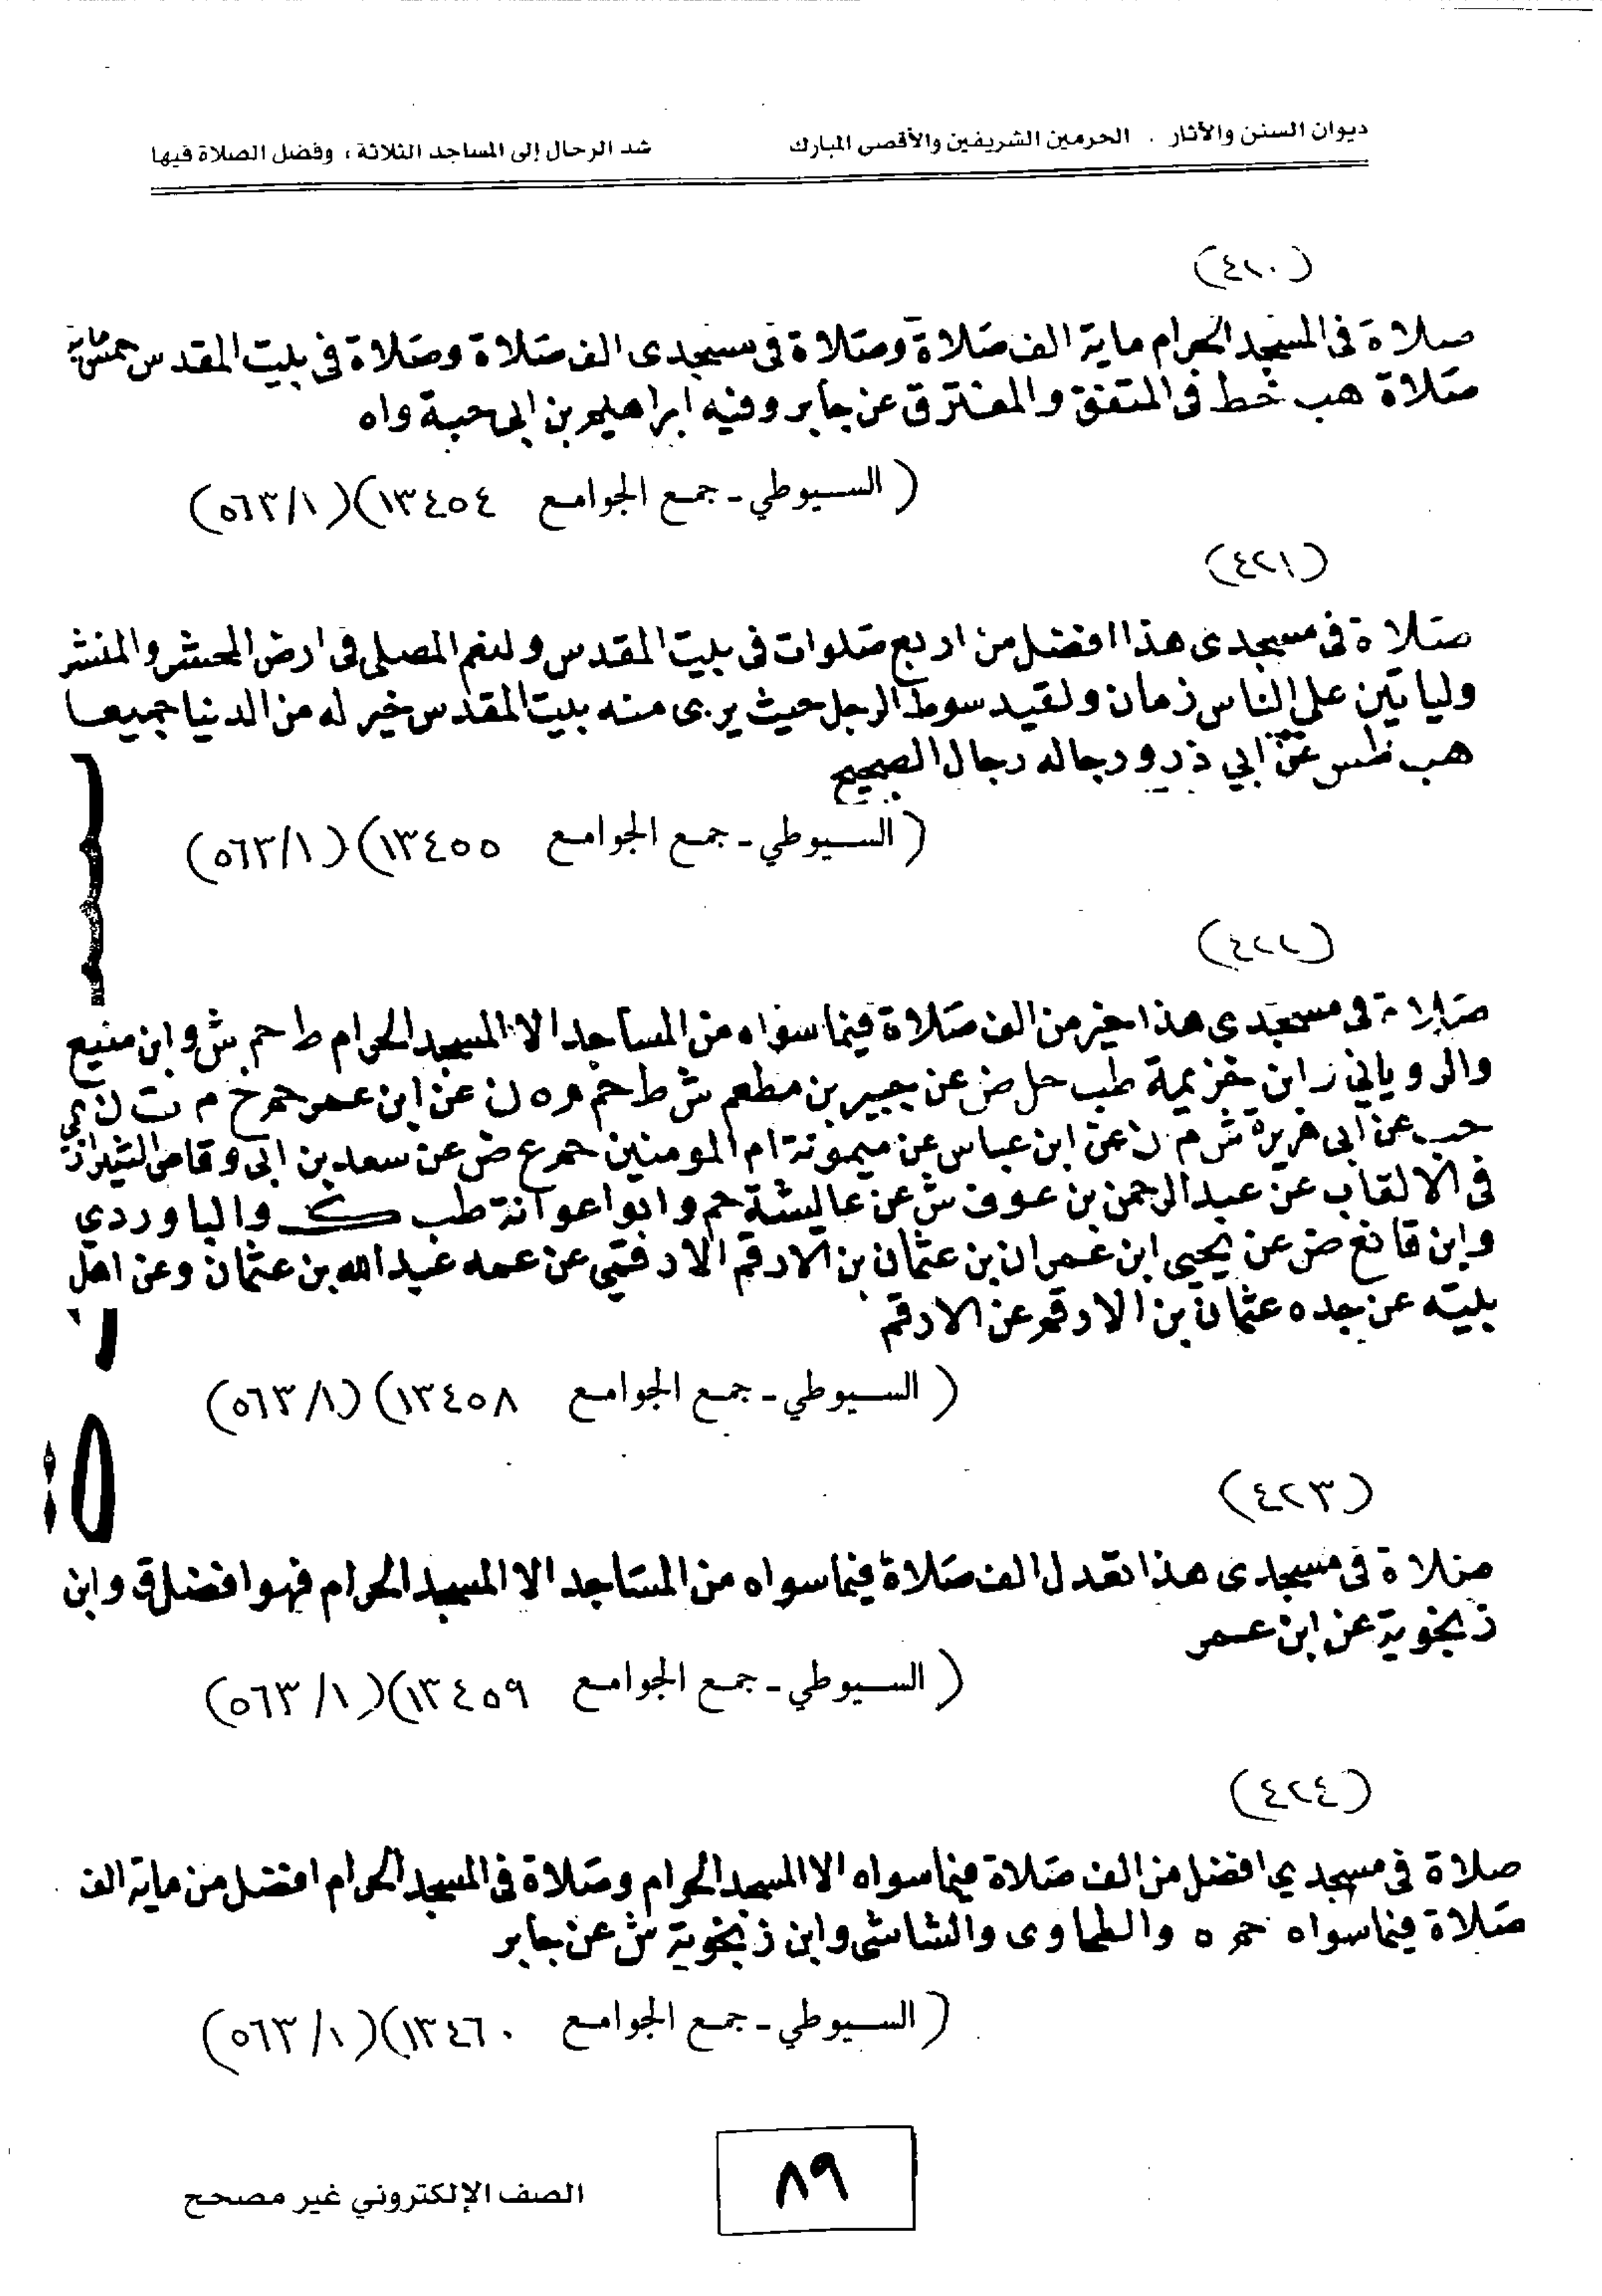 ديوان السنن والآثار . الحرمين الشريفين والأقصى المبارك شد الرحال إلى المساجد الثلاثة ، وفضل الصلاة فيها
(٤٢٠)
صلاة فى المسجد الحرام ماية الف صلاة وصلاة فى مسجدى الف صلاة وصلاة فى بيت المقدس خمسماية
صلاة هب خط فى المتفق والمفترق عن جابر وفيه ابراهيم بن ابى حية واه
( السيوطي - جمع الجوامع ١٣٤٥٤) (٥٦٣/١)
(٤٢١)
صلاة فى مسجدى هذا افضل من اربع صلوات فى بيت المقدس ولنعم المصلى فى ارض المحشر والمنشر
ولياتين على الناس زمان ولقيد سوط الرجل حيث يرى منه بيت المقدس خير له من الدنيا جميعا
هب طس عن ابي ذر ورجاله رجال الصحيح
( السيوطي - جمع الجوامع ١٣٤٥٥) (٥٦٣/١)
(٤٢٢)
صلاة فى مسجدى هذا خير من الف صلاة فيما سواه من المساجد الا المسجد الحرام ط حم ش وابن منيع
والرويانى ز ابن خزيمة طب حل ض عن جبير بن مطعم ش ط حم م ه ن عن ابن عمر حم خ م ت ن
حب عن ابى هريرة ش م ن عن ابن عباس عن ميمونة ام المومنين حم ع ض عن سعد بن ابى وقاص الشيرازى
فى الالقاب عن عبد الرحمن بن عوف ش عن عايشة حم وابوا عوانة طب ك والباوردي
وابن قانع ض عن يحيى ابن عمران بن عثمان بن الارقم الارقمي عن عمه عبد الله بن عثمان وعن اهل
بيته عن جده عثمان بن الارقم عن الارقم
( السيوطي - جمع الجوامع ١٣٤٥٨) (٥٦٣/١)
(٤٢٣)
صلاة فى مسجدى هذا تعدل الف صلاة فيما سواه من المساجد الا المسجد الحرام فهو افضل ق وابن
زنجوية عن ابن عمر
( السيوطي - جمع الجوامع ١٣٤٥٩) (٥٦٣/١)
(٤٢٤)
صلاة فى مسجدي افضل من الف صلاة فيما سواه الا المسجد الحرام وصلاة فى المسجد الحرام افضل من ماية الف
صلاة فيما سواه حم ه والطحاوى والشاشى وابن زنجوية ش عن جابر
( السيوطي - جمع الجوامع ١٣٤٦٠) (٥٦٣/١)
٨٩
الصف الإلكتروني غير مصحح